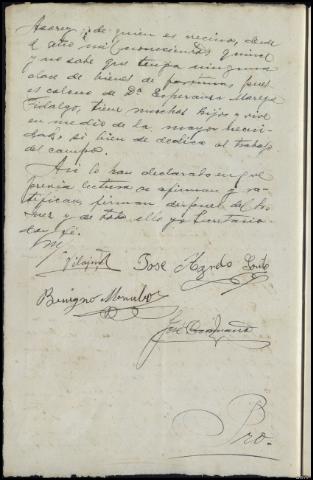 Asarey, de quien es vecino, desde
el año mil novecientos quince
y no sabe que tenga ninguna
clase de bienes de fortuna pues
es colono de Dª Esperanza Mareza
Fidalgo, tiene muchos hijos y vive
en medio de la mayor
si bien se dedica al trabajo
del campo.
Así lo han declarado en que
previa lectura se afirman y ra-
tifican, firman despues del Sr
Juez y de todo ello yo Secretario
doy fé.
José
Benigno
José
Pro.